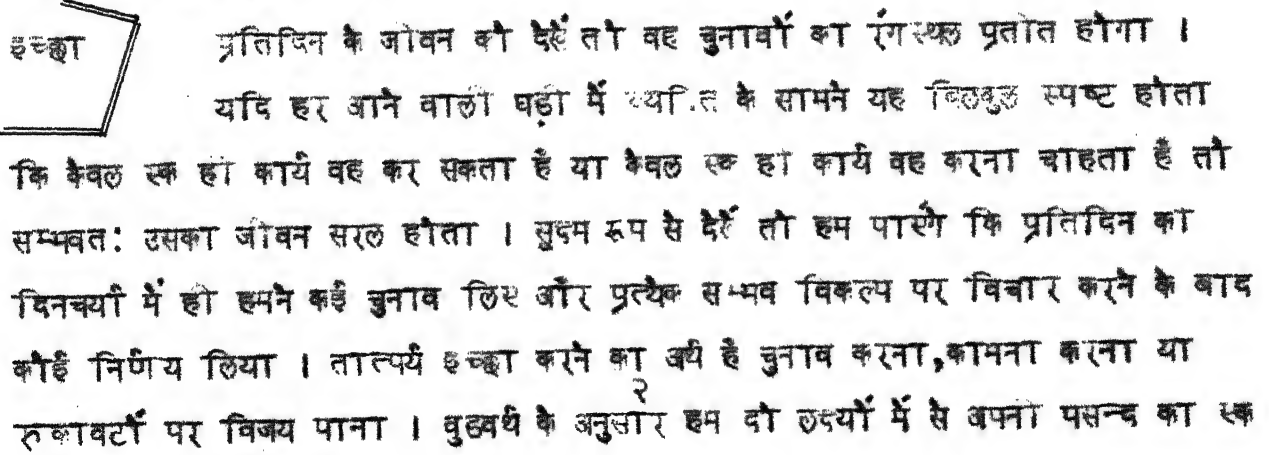 इच्छा प्रतिदिन के जीवन को देखें तो वह चुनावों का रंगस्थल प्रतीत होगा ।
यदि हर आने वाली घड़ी में व्यक्ति के सामने यह बिलकुल स्पष्ट होता
कि केवल एक ही कार्य वह कर सकता है या केवल एक ही कार्य वह करना चाहता है तो
सम्भवत: उसका जीवन सरल होता । सूक्ष्म रूप से देखें तो हम पाएंगे कि प्रतिदिन की
दिनचर्या में ही हमने कई चुनाव लिए और प्रत्येक सम्भव विकल्प पर विचार करने के बाद
कोई निर्णय लिया । तात्पर्य इच्छा करने का अर्थ है चुनाव करना,कामना करना या
रुकावटों पर विजय पाना । वुडवर्थ के अनुसार२ हम दो लक्ष्यों में से अपनी पसन्द का एक